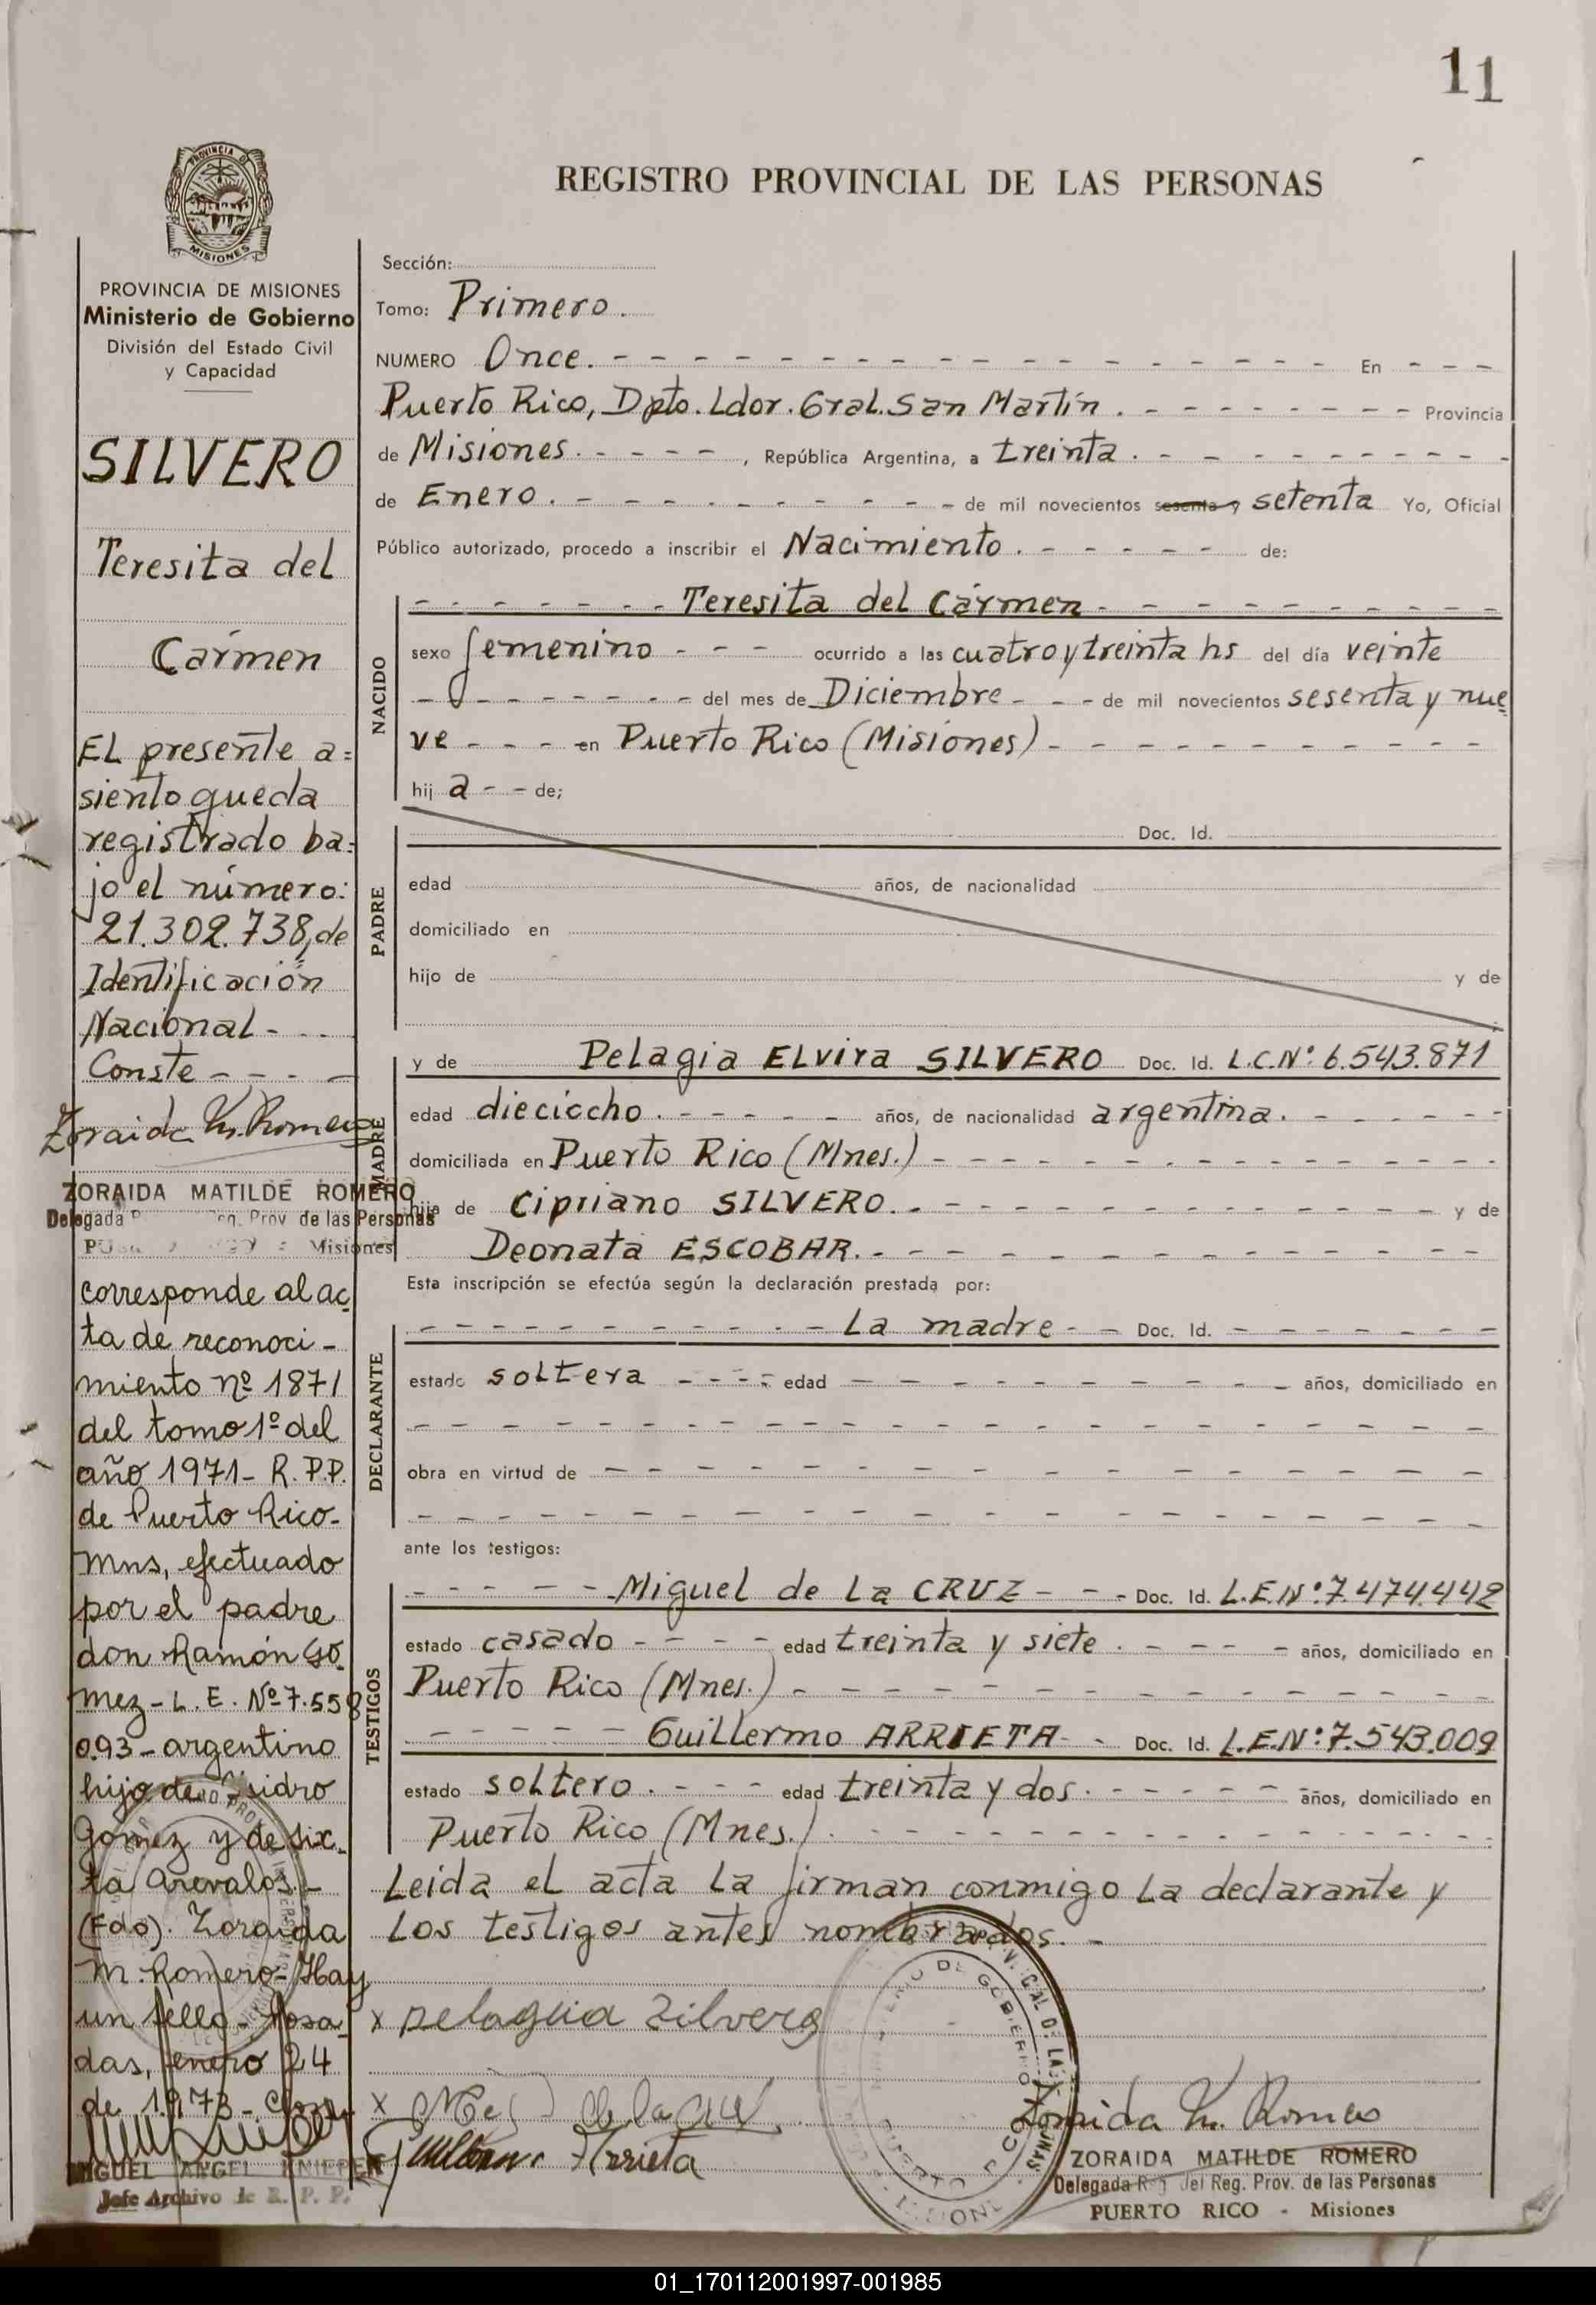 11
PROVINCIA DE
MISIONES
REGISTRO PROVINCIAL DE LAS PERSONAS
PROVINCIA DE MISIONES
Ministerio de Gobierno
División del Estado Civil
y Capacidad
SILVERO
Teresita del
Cármen
EL presente a=
siento queda
registrado ba=
jo el número:
21.302.738, de
Identificación
Nacional - - -
Conste - - - -
Zoraida M. Romero
ZORAIDA MATILDE ROMERO
Delegada Reg. Prov de las Personas
Misiones
corresponde al ac
ta de reconoci -
miento nº 1871
del tomo 1º del
año 1971 - R.P.P.
de Puerto Rico -
Mns, efectuado
por el padre
don Ramón Gó
mez - L. E. Nº 7.558
093 - argentino
hijo de Isidro
Gomez y de Six
ta Arevalos -
(Fdo). Zoraida
M. Romero - Hay
un sello - Posa
das, enero 24
de 1973 -
MIGUEL ANGEL KNIEPER
Jefe Archivo de R. P. P.
Sección:
Tomo: Primero.
NUMERO Once. - - - En - - -
Puerto Rico, Dpto. Ldor. Gral. San Martín. - - - Provincia
de Misiones. - - - -, República Argentina, a treinta. - - -
de Enero. - - - de mil novecientos sesenta y setenta Yo, Oficial
Público autorizado, procedo a inscribir el Nacimiento. - - - de:
NACIDO
- - - Teresita del Cármen - - -
sexo femenino - - - ocurrido a las cuatro y treinta hs del día veinte
- - - del mes de Diciembre - - - de mil novecientos sesenta y nue
ve - - - en Puerto Rico (Misiones) - - -
hij a - - de;
PADRE
Doc. Id.
edad años, de nacionalidad
domiciliado en
hijo de y de
MADRE
y de Pelagia ELvira SILVERO Doc. Id. L.C.Nº: 6.543.871
edad dieciocho. - - - años, de nacionalidad argentina. - - -
domiciliada en Puerto Rico (Mnes.) - - -
hija de Cipriano SILVERO. - - - y de
Deonata ESCOBAR. - - -
Esta inscripción se efectúa según la declaración prestada por:
DECLARANTE
- - - La madre - - Doc. Id. - - -
estado soltera - - - edad - - - años, domiciliado en
- - -
obra en virtud de - - -
- - -
ante los testigos:
TESTIGOS
- - - Miguel de La CRUZ - - - Doc. Id. L.E.Nº: 7.474.442
estado casado - - - - edad treinta y siete. - - - años, domiciliado en
Puerto Rico (Mnes.) - - -
- - - Guillermo ARRIETA - - Doc. Id. L.E.Nº: 7.543.009
estado soltero. - - - edad treinta y dos. - - - años, domiciliado en
Puerto Rico (Mnes.). - - -
Leida el acta la firman conmigo la declarante y
los testigos antes nombrados. -
x Pelagia Silvero
x
Guillermo Arrieta
Zoraida M. Romero
ZORAIDA MATILDE ROMERO
Delegada Reg. del Reg. Prov. de las Personas
PUERTO RICO - Misiones
01_170112001997-001985